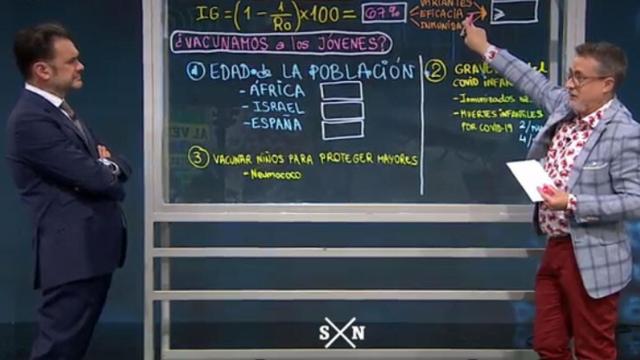 IG = (1 - 1/Ro) × 100 = 67%
VARIANTES
EFICACIA
INMUNIDAD
>
¿VACUNAMOS a los JÓVENES?
① EDAD de LA POBLACIÓN
- ÁFRICA
- ISRAEL
- ESPAÑA
② GRAVE
COVID INFAN
- Inmunizados
- MUERTES INFANTILES
POR COVID-19 2/
4/
③ VACUNAR NIÑOS PARA PROTEGER MAYORES
- Neumococo
S N